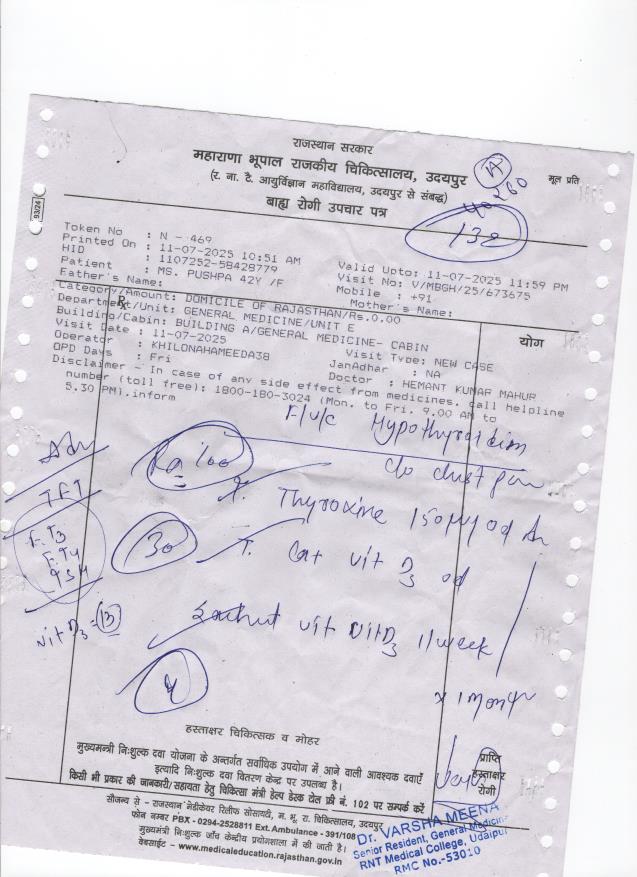 राजस्थान सरकार
महाराणा भूपाल राजकीय चिकित्सालय, उदयपुर
मूल प्रति
(र. ना. टै. आयुर्विज्ञान महाविद्यालय, उदयपुर से संबद्ध)
बाह्य रोगी उपचार पत्र
260
132
93/24
Token No : N - 469
Printed On : 11-07-2025 10:51 AM
Valid Upto: 11-07-2025 11:59 PM
HID : 1107252-58428779
Visit No: V/MBGH/25/673675
Patient : MS. PUSHPA 42Y /F
Mobile : +91
Father's Name:
Mother's Name:
Category/Amount: DOMICILE OF RAJASTHAN/Rs.0.00
Department/Unit: GENERAL MEDICINE/UNIT E
योग
Building/Cabin: BUILDING A/GENERAL MEDICINE- CABIN
Visit Date : 11-07-2025
Visit Type: NEW CASE
Operator : KHILONAHAMEEDA38
JanAdhar : NA
OPD Days : Fri
Doctor : HEMANT KUMAR MAHUR
Disclaimer - In case of any side effect from medicines, call helpline
number (toll free): 1800-180-3024 (Mon. to Fri. 9.00 AM to
5.30 PM).inform
F/U/C Hypothyroidism
Adv
TFT
F.T3
F.T4
TSH
Vit D3 = 13
T. Thyroxine 150 μg od
30
T. Cal vit D3 od
Sachet vit D3 1/week
x 1 month
हस्ताक्षर चिकित्सक व मोहर
मुख्यमन्त्री निःशुल्क दवा योजना के अन्तर्गत सर्वाधिक उपयोग में आने वाली आवश्यक दवाऐं
इत्यादि निःशुल्क दवा वितरण केन्द्र पर उपलब्ध है।
किसी भी प्रकार की जानकारी/सहायता हेतु चिकित्सा मंत्री हेल्प डेस्क टोल फ्री नं. 102 पर सम्पर्क करें
प्राप्ति
हस्ताक्षर
रोगी
सौजन्य से - राजस्थान मेडीकेयर रिलीफ सोसायटी, म. भू. रा. चिकित्सालय, उदयपुर
फोन नम्बर PBX - 0294-2528811 Ext. Ambulance - 391/108
मुख्यमन्त्री निःशुल्क जाँच केन्द्रीय प्रयोगशाला में की जाती है।
वेबसाईट - www.medicaleducation.rajasthan.gov.in
Dr. VARSHA MEENA
Senior Resident, General Medicine
RNT Medical College, Udaipur
RMC No.-53010